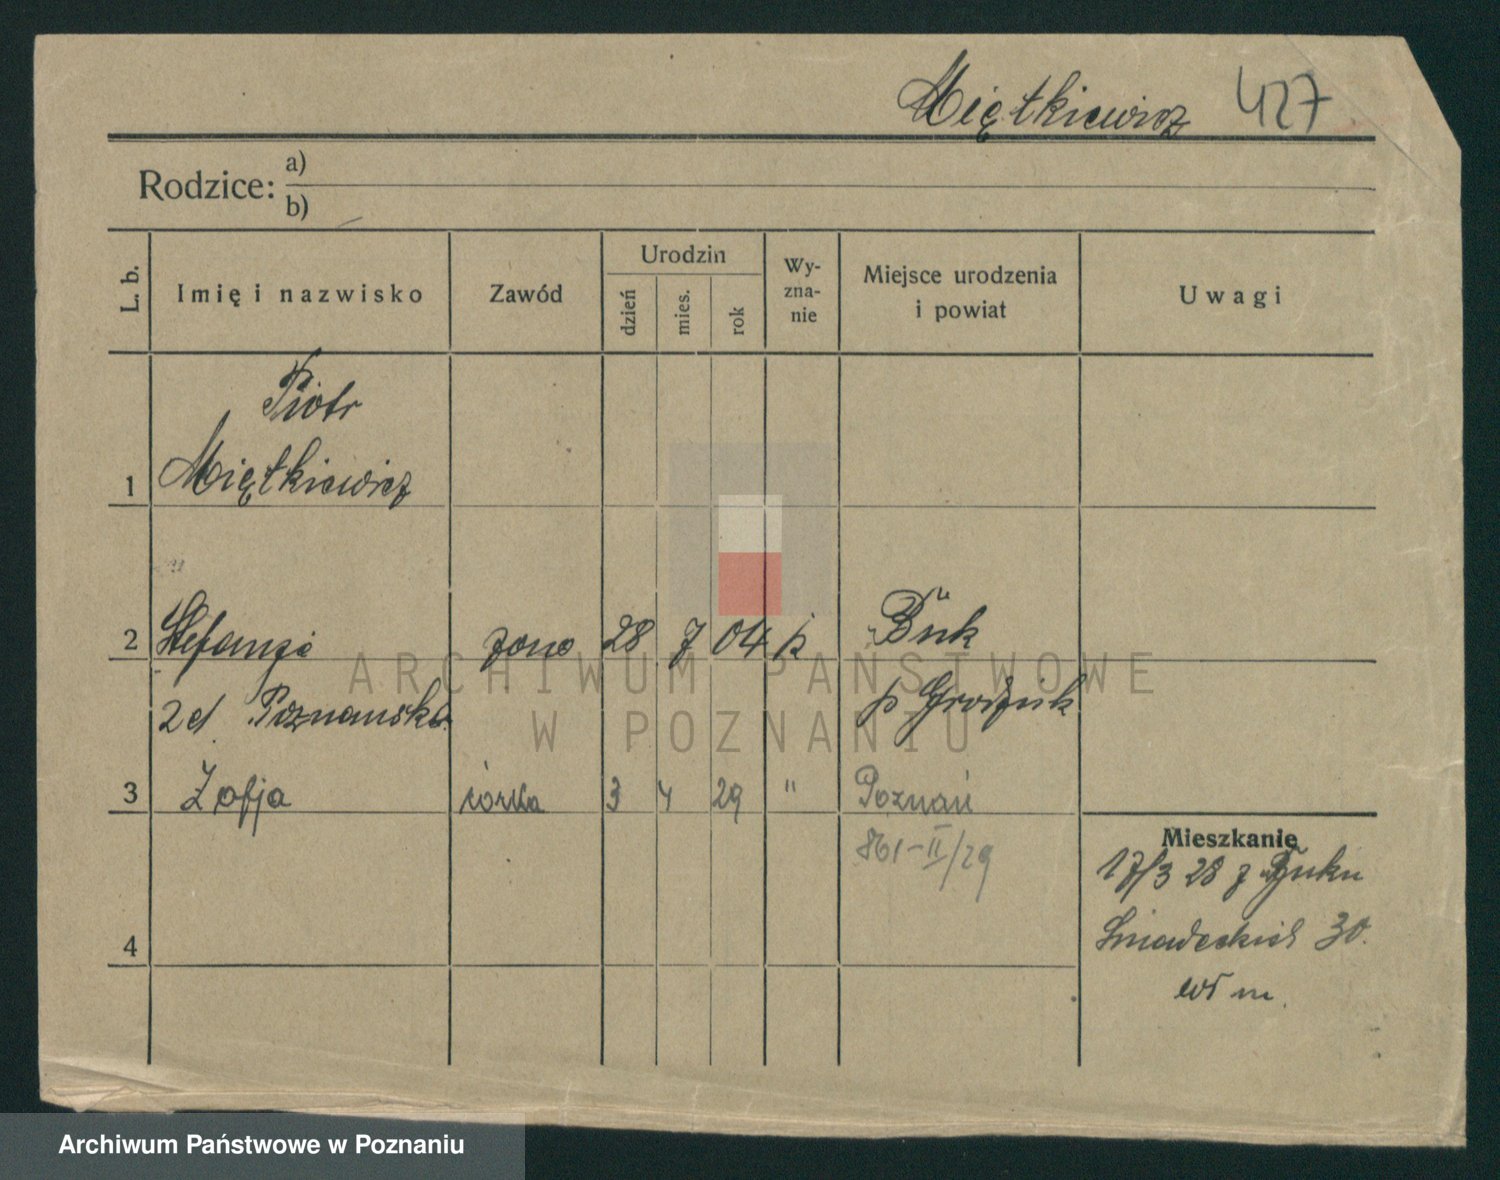 Miętkiewicz 427
Rodzice: a)
b)
L. b.
Imię i nazwisko
Zawód
Urodzin
dzień
mies.
rok
Wy-
zna-
nie
Miejsce urodzenia
i powiat
Uwagi
Piotr
1 Miętkiewicz
2 Stefanja żona 28 7 04 k Buk
zd. Poznańska p Grodzisk
3 Zofja córka 3 4 29 " Poznań
861-II/29
4
Mieszkanie
17/3 28 z Buku
Śniadeckich 30.
wł m.
ARCHIWUM PAŃSTWOWE
W POZNANIU
Archiwum Państwowe w Poznaniu